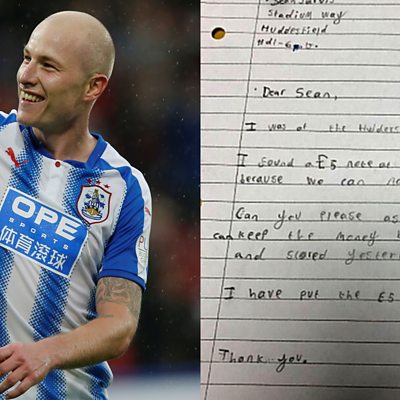 OPE
SPORTS
体育滚球
Sean Jarvis
Stadium Way
Huddesfield
Hd1-6
Dear Sean,
I was at the Hudders
I found a £5 note at
because we can
Can you please as
can keep the money
and scored yester
I have put the £5
Thank you.